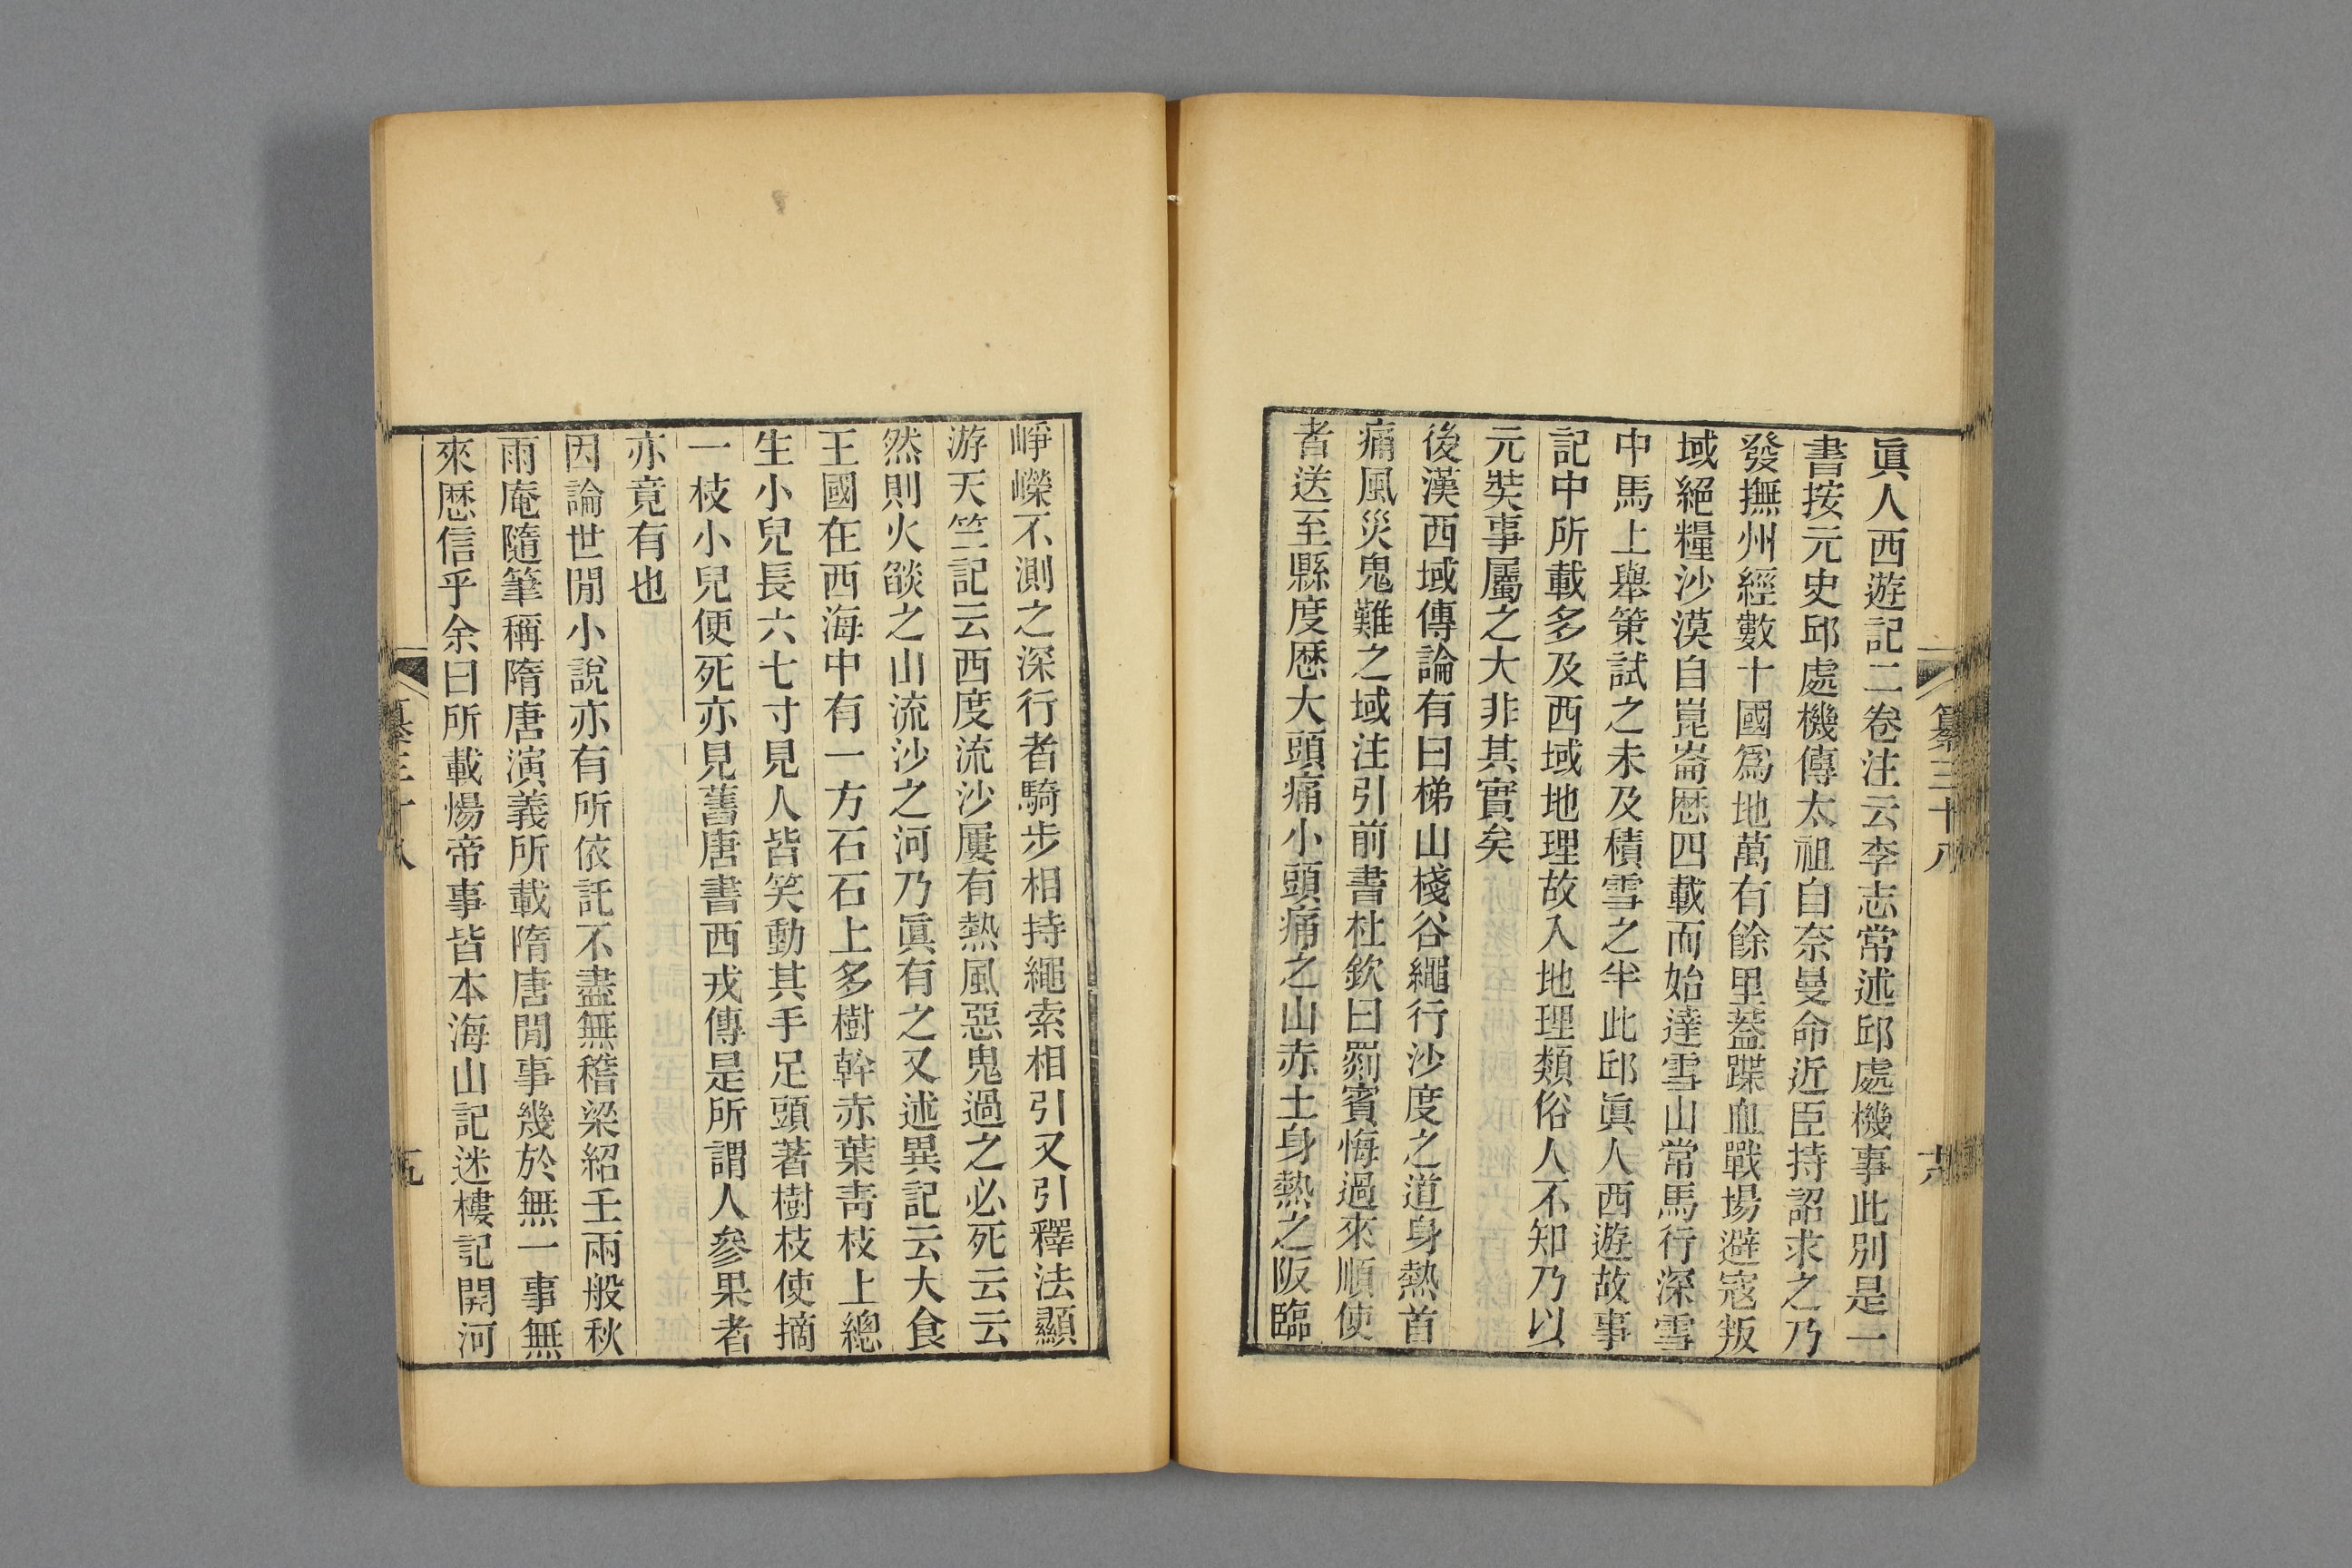 眞人西遊記二卷注云李志常述邱處機事此別是一
書按元史邱處機傳太祖自奈曼命近臣持詔求之乃
發撫州經數十國爲地萬有餘里蓋蹀血戰場避寇叛
域絕糧沙漠自崑崙歷四載而始達雪山常馬行深雪
中馬上舉策試之未及積雪之半此邱眞人西遊故事
記中所載多及西域地理故入地理類俗人不知乃以
元奘事屬之大非其實矣
後漢西域傳論有曰梯山棧谷繩行沙度之道身熱首
痛風災鬼難之域注引前書杜欽曰罽賓悔過來順使
者送至縣度歷大頭痛小頭痛之山赤土身熱之阪臨
崢嶸不測之深行者騎步相持繩索相引又引釋法顯
游天竺記云西度流沙屢有熱風惡鬼過之必死云云
然則火燄之山流沙之河乃眞有之又述異記云大食
王國在西海中有一方石石上多樹幹赤葉靑枝上總
生小兒長六七寸見人皆笑動其手足頭著樹枝使摘
一枝小兒便死亦見舊唐書西戎傳是所謂人參果者
亦竟有也
因論世閒小說亦有所依託不盡無稽梁紹壬兩般秋
雨庵隨筆稱隋唐演義所載隋唐閒事幾於無一事無
來歷信乎余曰所載煬帝事皆本海山記迷樓記開河
纂三十八